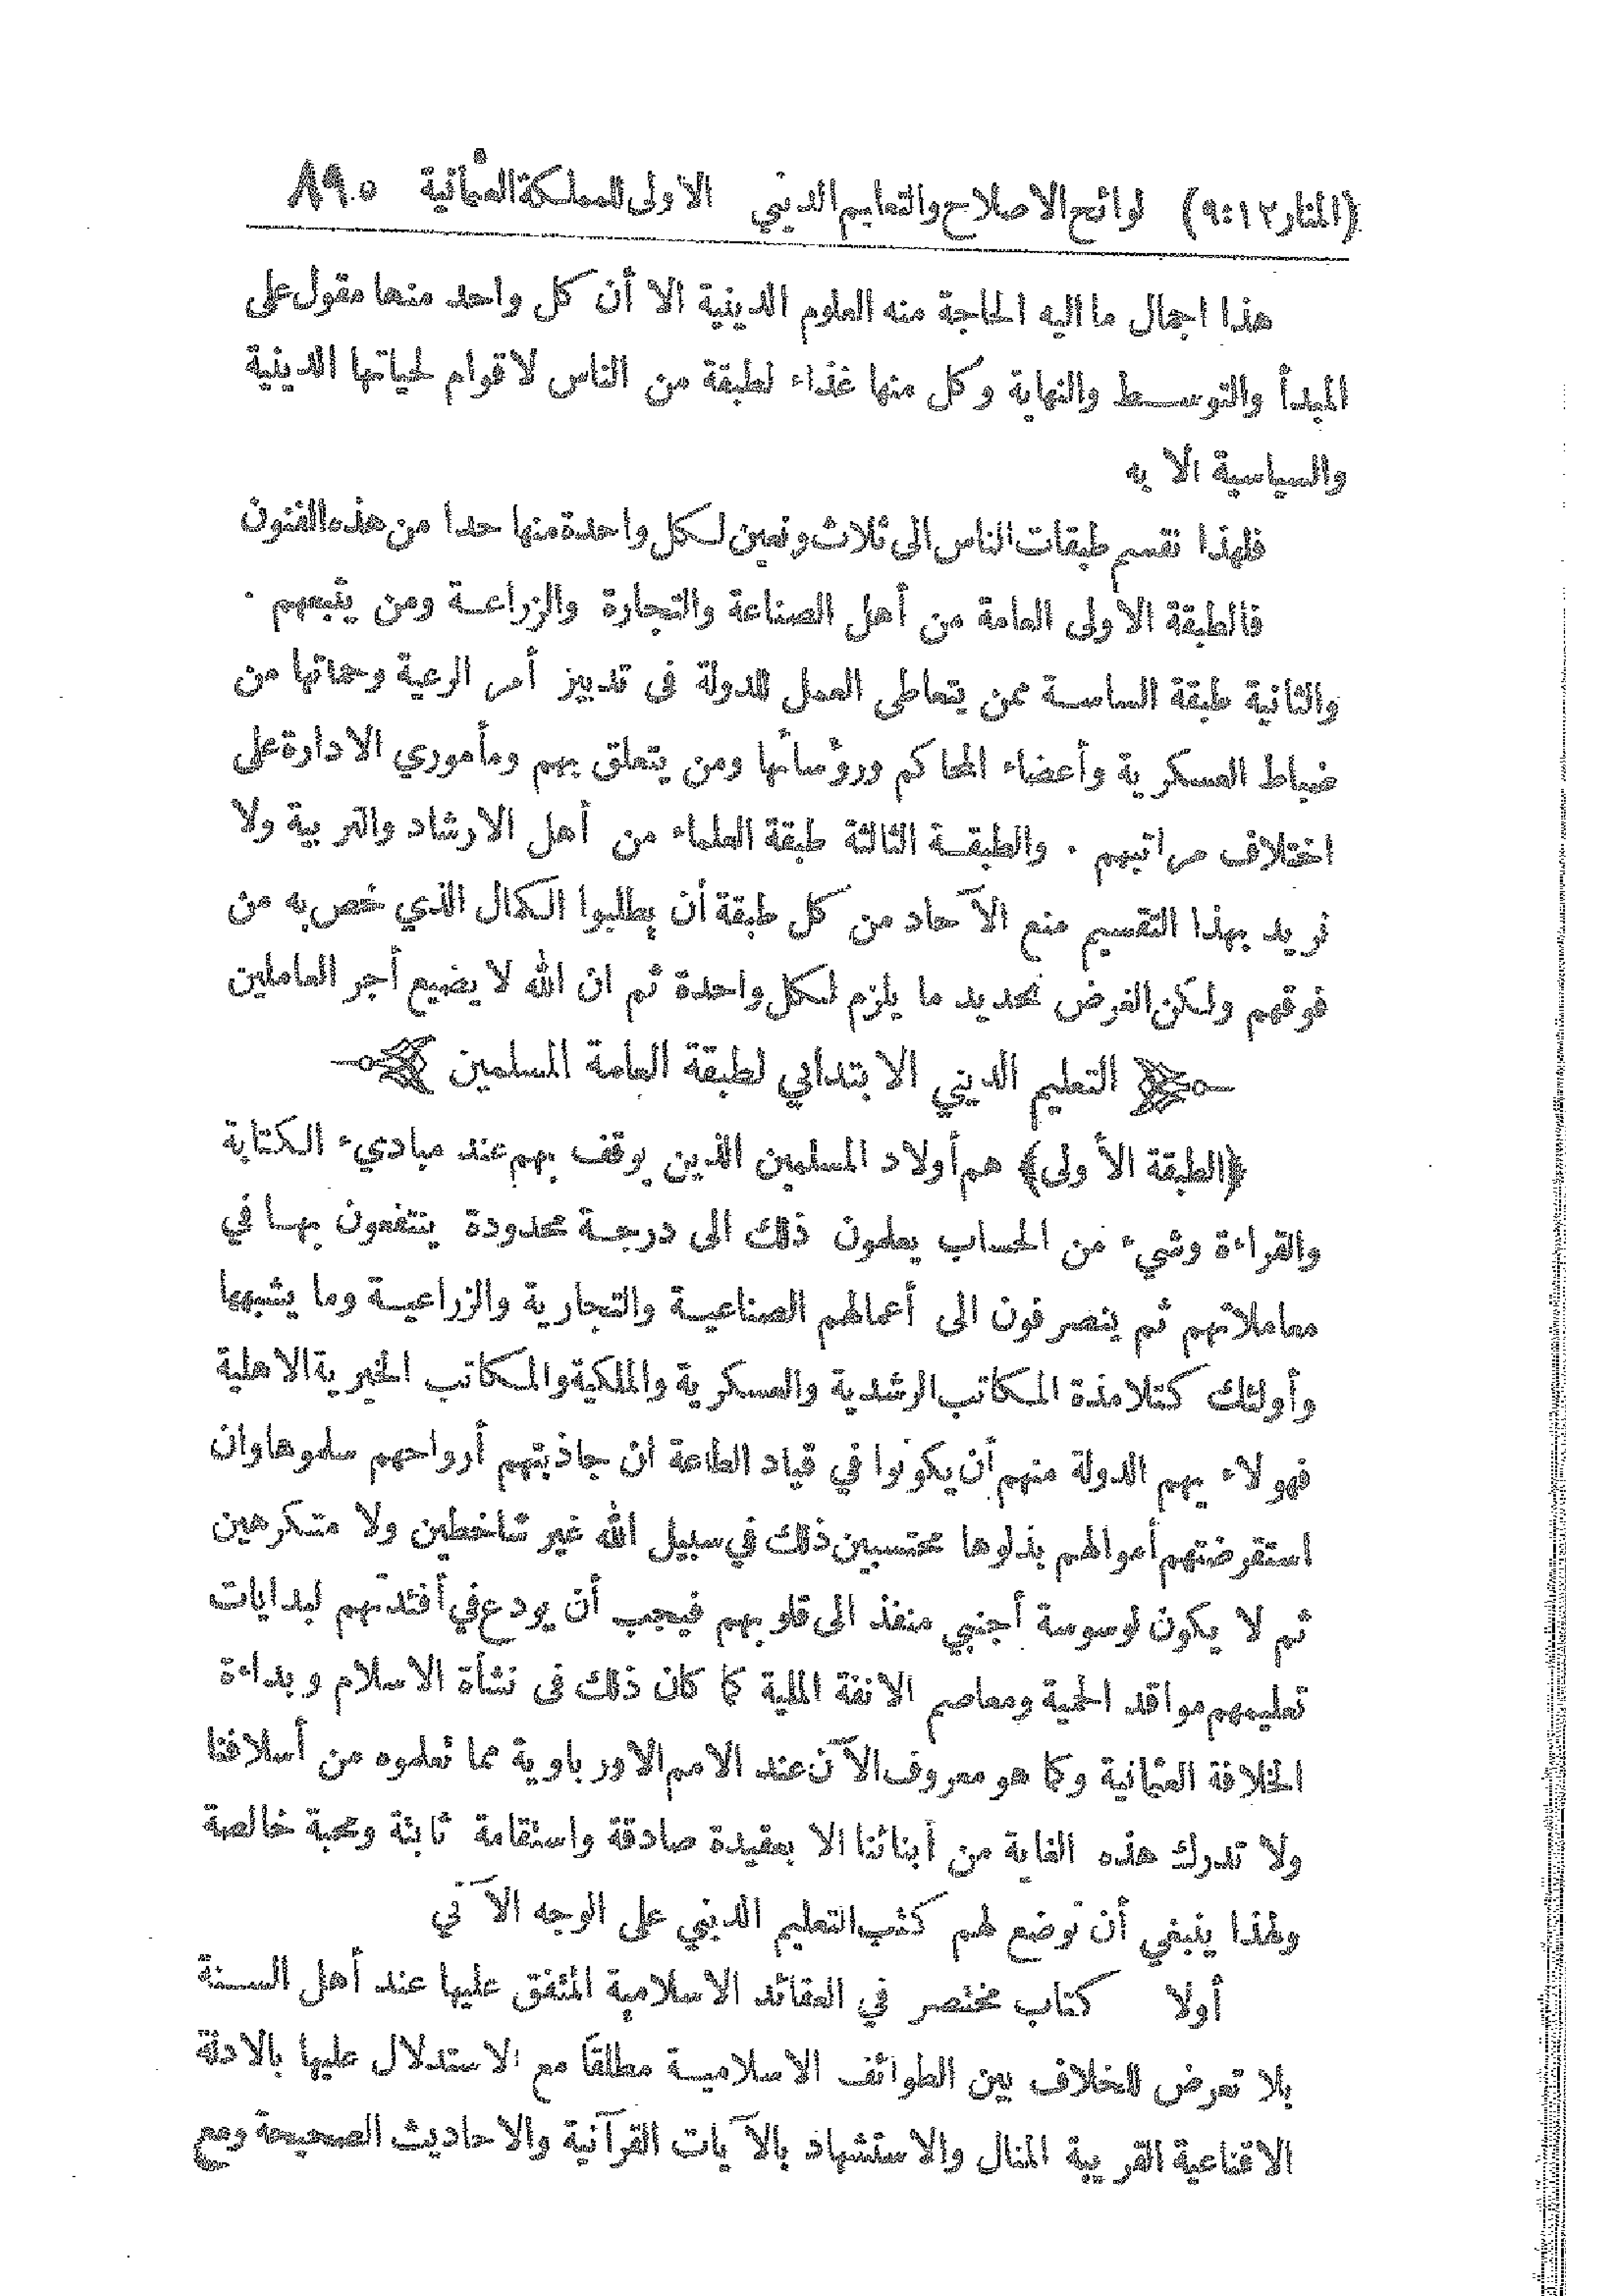 (المنار ١٢:٩) لوائح الاصلاح والتعليم الديني الاولى للمملكة العثمانية ٨٩٠٥
هذا اجمال ما اليه الحاجة منه العلوم الدينية الا أن كل واحد منها مقول على
المبدأ والتوسط والنهاية وكل منها غذاء لطبقة من الناس لا قوام لحياتها الدينية
والسياسية الا به
فلهذا نقسم طبقات الناس الى ثلاث ونعين لكل واحدة منها حدا من هذه الفنون
فالطبقة الاولى العامة من أهل الصناعة والتجارة والزراعة ومن يتبعهم .
والثانية طبقة الساسة ممن يتعاطى العمل للدولة فى تدبيز أمر الرعية وحماتها من
ضباط العسكرية وأعضاء المحاكم ورؤسائها ومن يتعلق بهم ومأموري الادارة على
اختلاف مراتبهم . والطبقة الثالثة طبقة العلماء من أهل الارشاد والتربية ولا
نريد بهذا التقسيم منع الآحاد من كل طبقة أن يطلبوا الكمال الذي خص به من
فوقهم ولكن الغرض تحديد ما يلزم لكل واحدة ثم ان الله لا يضيع أجر العاملين
التعليم الديني الابتدائي لطبقة العامة المسلمين
﴿الطبقة الأولى﴾ هم أولاد المسلمين الذين يوقف بهم عند مباديء الكتابة
والقراءة وشيء من الحساب يعلمون ذلك الى درجة محدودة ينتفعون بها في
معاملاتهم ثم ينصرفون الى أعمالهم الصناعية والتجارية والزراعية وما يشبهها
وأولئك كتلامذة المكاتب الرشدية والعسكرية والملكية والمكاتب الخيرية الاهلية
فهولاء يهم الدولة منهم أن يكونوا في قياد الطاعة ان جاذبتهم أرواحهم سلموها وان
استقرضتهم أموالهم بذلوها محتسبين ذلك في سبيل الله غير ساخطين ولا متكرهين
ثم لا يكون لوسوسة أجنبي منفذ الى قلوبهم فيجب أن يودع في أفئدتهم لبدايات
تعليمهم مواقد الحمية ومعاصم الانفة الملية كما كان ذلك فى نشأة الاسلام وبداءة
الخلافة العثمانية وكما هو معروف الآن عند الامم الاورباوية مما تعلموه من أسلافنا
ولا تدرك هذه الغاية من أبنائنا الا بعقيدة صادقة واستقامة ثابتة ومحبة خالصة
ولهذا ينبغي أن توضع لهم كتب التعليم الديني على الوجه الآتي
أولا كتاب مختصر في العقائد الاسلامية المتفق عليها عند أهل السنة
بلا تعرض للخلاف بين الطوائف الاسلامية مطلقا مع الاستدلال عليها بالادلة
الاقناعية القريبة المنال والاستشهاد بالآيات القرآنية والاحاديث الصحيحة ومع